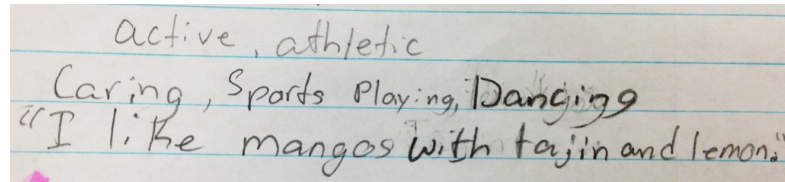 active, athletic
Caring, Sports Playing, Dancing
"I like mangos with tajin and lemon."